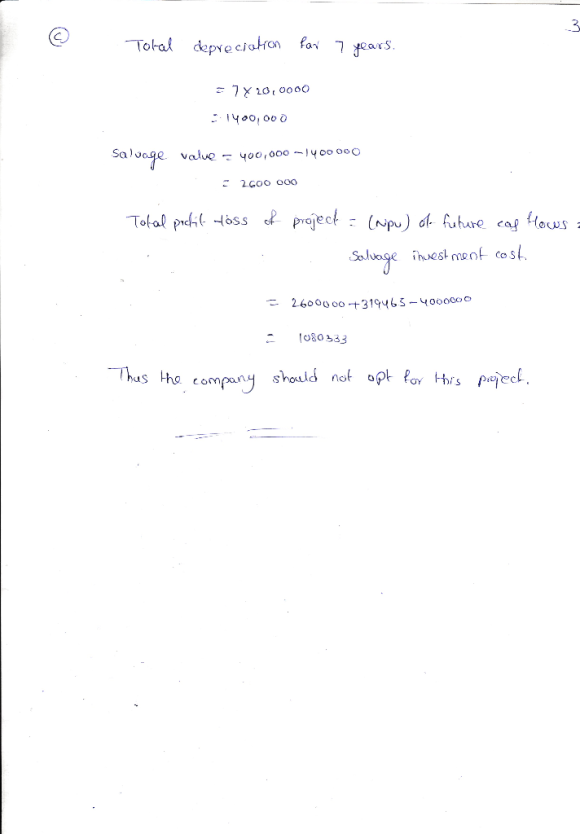 3
(c) Total depreciation for 7 years.
= 7 × 20,0000
= 1400,000
Salvage value = 400,000 - 1400000
= 2600 000
Total profit loss of project = (Npv) of future cas flows =
Salvage investment cost.
= 2600000 + 319465 - 4000000
= 1080333
Thus the company should not opt for this project.